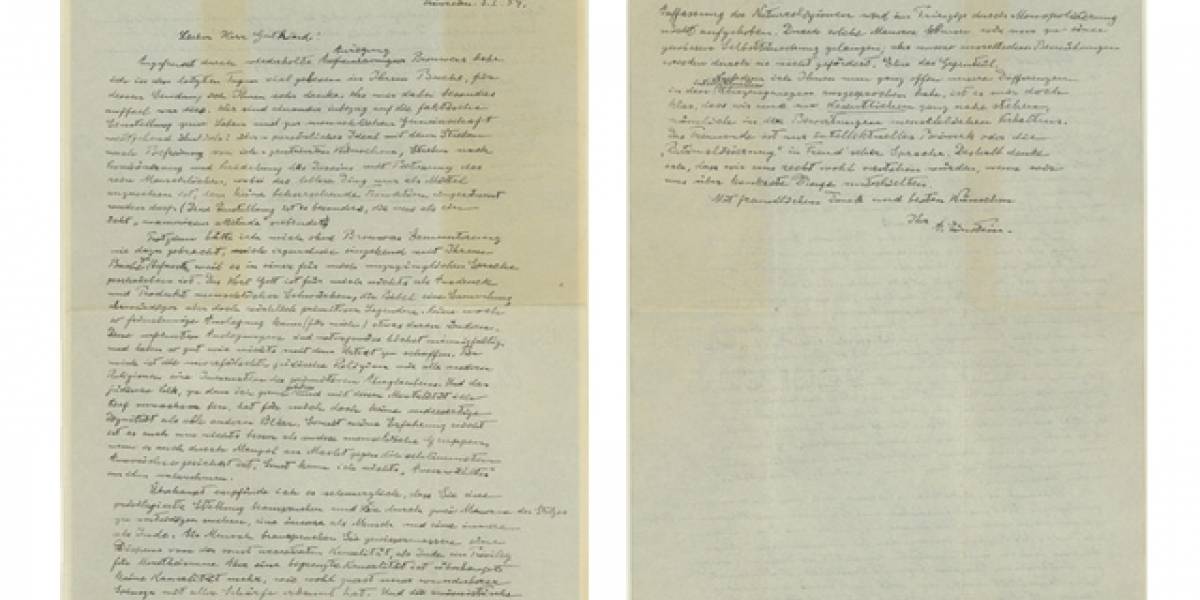 Princeton. 3. 1. 54.
Lieber Herr Gutkind!
Angefeuert durch wiederholte Anregung Brouwers habe
ich in den letzten Tagen viel gelesen in Ihrem Buche, für
dessen Sendung ich Ihnen sehr danke. Was mir dabei besonders
auffiel war dies. Wir sind einander inbezug auf die faktische
Einstellung zum Leben und zur menschlichen Gemeinschaft
weitgehend
persönliches Ideal mit dem Streben
nach Befreiung von ich-zentrierten Wünschen, Streben nach
Verschönerung und Veredelung des Daseins mit Betonung des
rein Menschlichen, wobei das leblose Ding nur als Mittel
anzusehen ist, dem keine beherrschende Funktion eingeräumt
werden darf. (Diese Einstellung ist es besonders, die uns als ein
echt „unamerican attitude" verbindet)
Trotzdem hätte ich mich ohne Brouwers Ermunterung
nie dazu gebracht, mich irgendwie eingehend mit Ihrem
Buche zu befassen, weil es in einer für mich unzugänglichen Sprache
geschrieben ist. Das Wort Gott ist für mich nichts als Ausdruck
und Produkt menschlicher Schwächen, die Bibel eine Sammlung
ehrwürdiger aber doch reichlich primitiver Legenden. Keine noch
so feinsinnige Auslegung kann (für mich) etwas daran ändern.
Diese verfeinerten Auslegungen sind naturgemäss höchst mannigfaltig
und haben so gut wie nichts mit dem Urtext zu schaffen. Für
mich ist die unverfälschte jüdische Religion wie alle anderen
Religionen eine Incarnation des primitiven Aberglaubens. Und das
jüdische Volk, zu dem ich gerne gehöre und mit dessen Mentalität ich
tief verwachsen bin, hat für mich doch keine andersartige
Dignität als alle anderen Völker. Soweit meine Erfahrung reicht
ist es auch um nichts besser als andere menschliche Gruppen,
wenn es auch durch Mangel an Macht gegen die schlimmsten
Auswüchse gesichert ist. Sonst kann ich nichts „Auserwähltes"
an ihm wahrnehmen.
Überhaupt empfinde ich es schmerzlich, dass Sie eine
privilegierte Stellung beanspruchen und sie durch zwei Mauern des Stolzes
zu verteidigen suchen, eine äussere als Mensch und eine innere
als Jude. Als Mensch beanspruchen Sie gewissermassen einen
Dispens von der sonst acceptierten Kausalität, als Jude ein Privileg
für Monotheismus. Aber eine begrenzte Kausalität ist überhaupt
keine Kausalität mehr, wie wohl zuerst unser wunderbarer
Spinoza mit aller Schärfe erkannt hat. Und die animistische
Auffassung der Naturreligionen wird im Prinzip durch Monopolisierung
nicht aufgehoben. Durch solche Mauern können wir nur zu einer
gewissen Selbsttäuschung gelangen; aber unsere moralischen Bemühungen
werden durch sie nicht gefördert. Eher das Gegenteil.
Nachdem ich Ihnen nun ganz offen unsere Differenzen
in den intellektuellen Überzeugungen ausgesprochen habe, ist es mir doch
klar, dass wir uns im Wesentlichen ganz nahe stehen,
nämlich in den Bewertungen menschlichen Verhaltens.
Das Trennende ist nur intellektuelles Beiwerk oder die
„Rationalisierung" in Freud'scher Sprache. Deshalb denke
ich, dass wir uns recht wohl verstehen würden, wenn wir
uns über konkrete Dinge unterhielten.
Mit freundlichem Dank und besten Wünschen
Ihr A. Einstein.